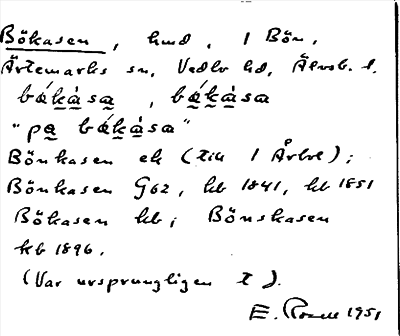 Bökasen, hmd, 1 Bön,
Ärtemarks sn, Vedbo hd, Älvsb. l.
bǻkàsa, bǻkàsa
"pa bǻkàsa"
Bönkasen ek (till 1 Årbol);
Bönkasen G62, kb 1841, kb 1851
Bökasen kb; Bönskasen
kb 1896.
(Var ursprungligen t).
E. Rosell 1951